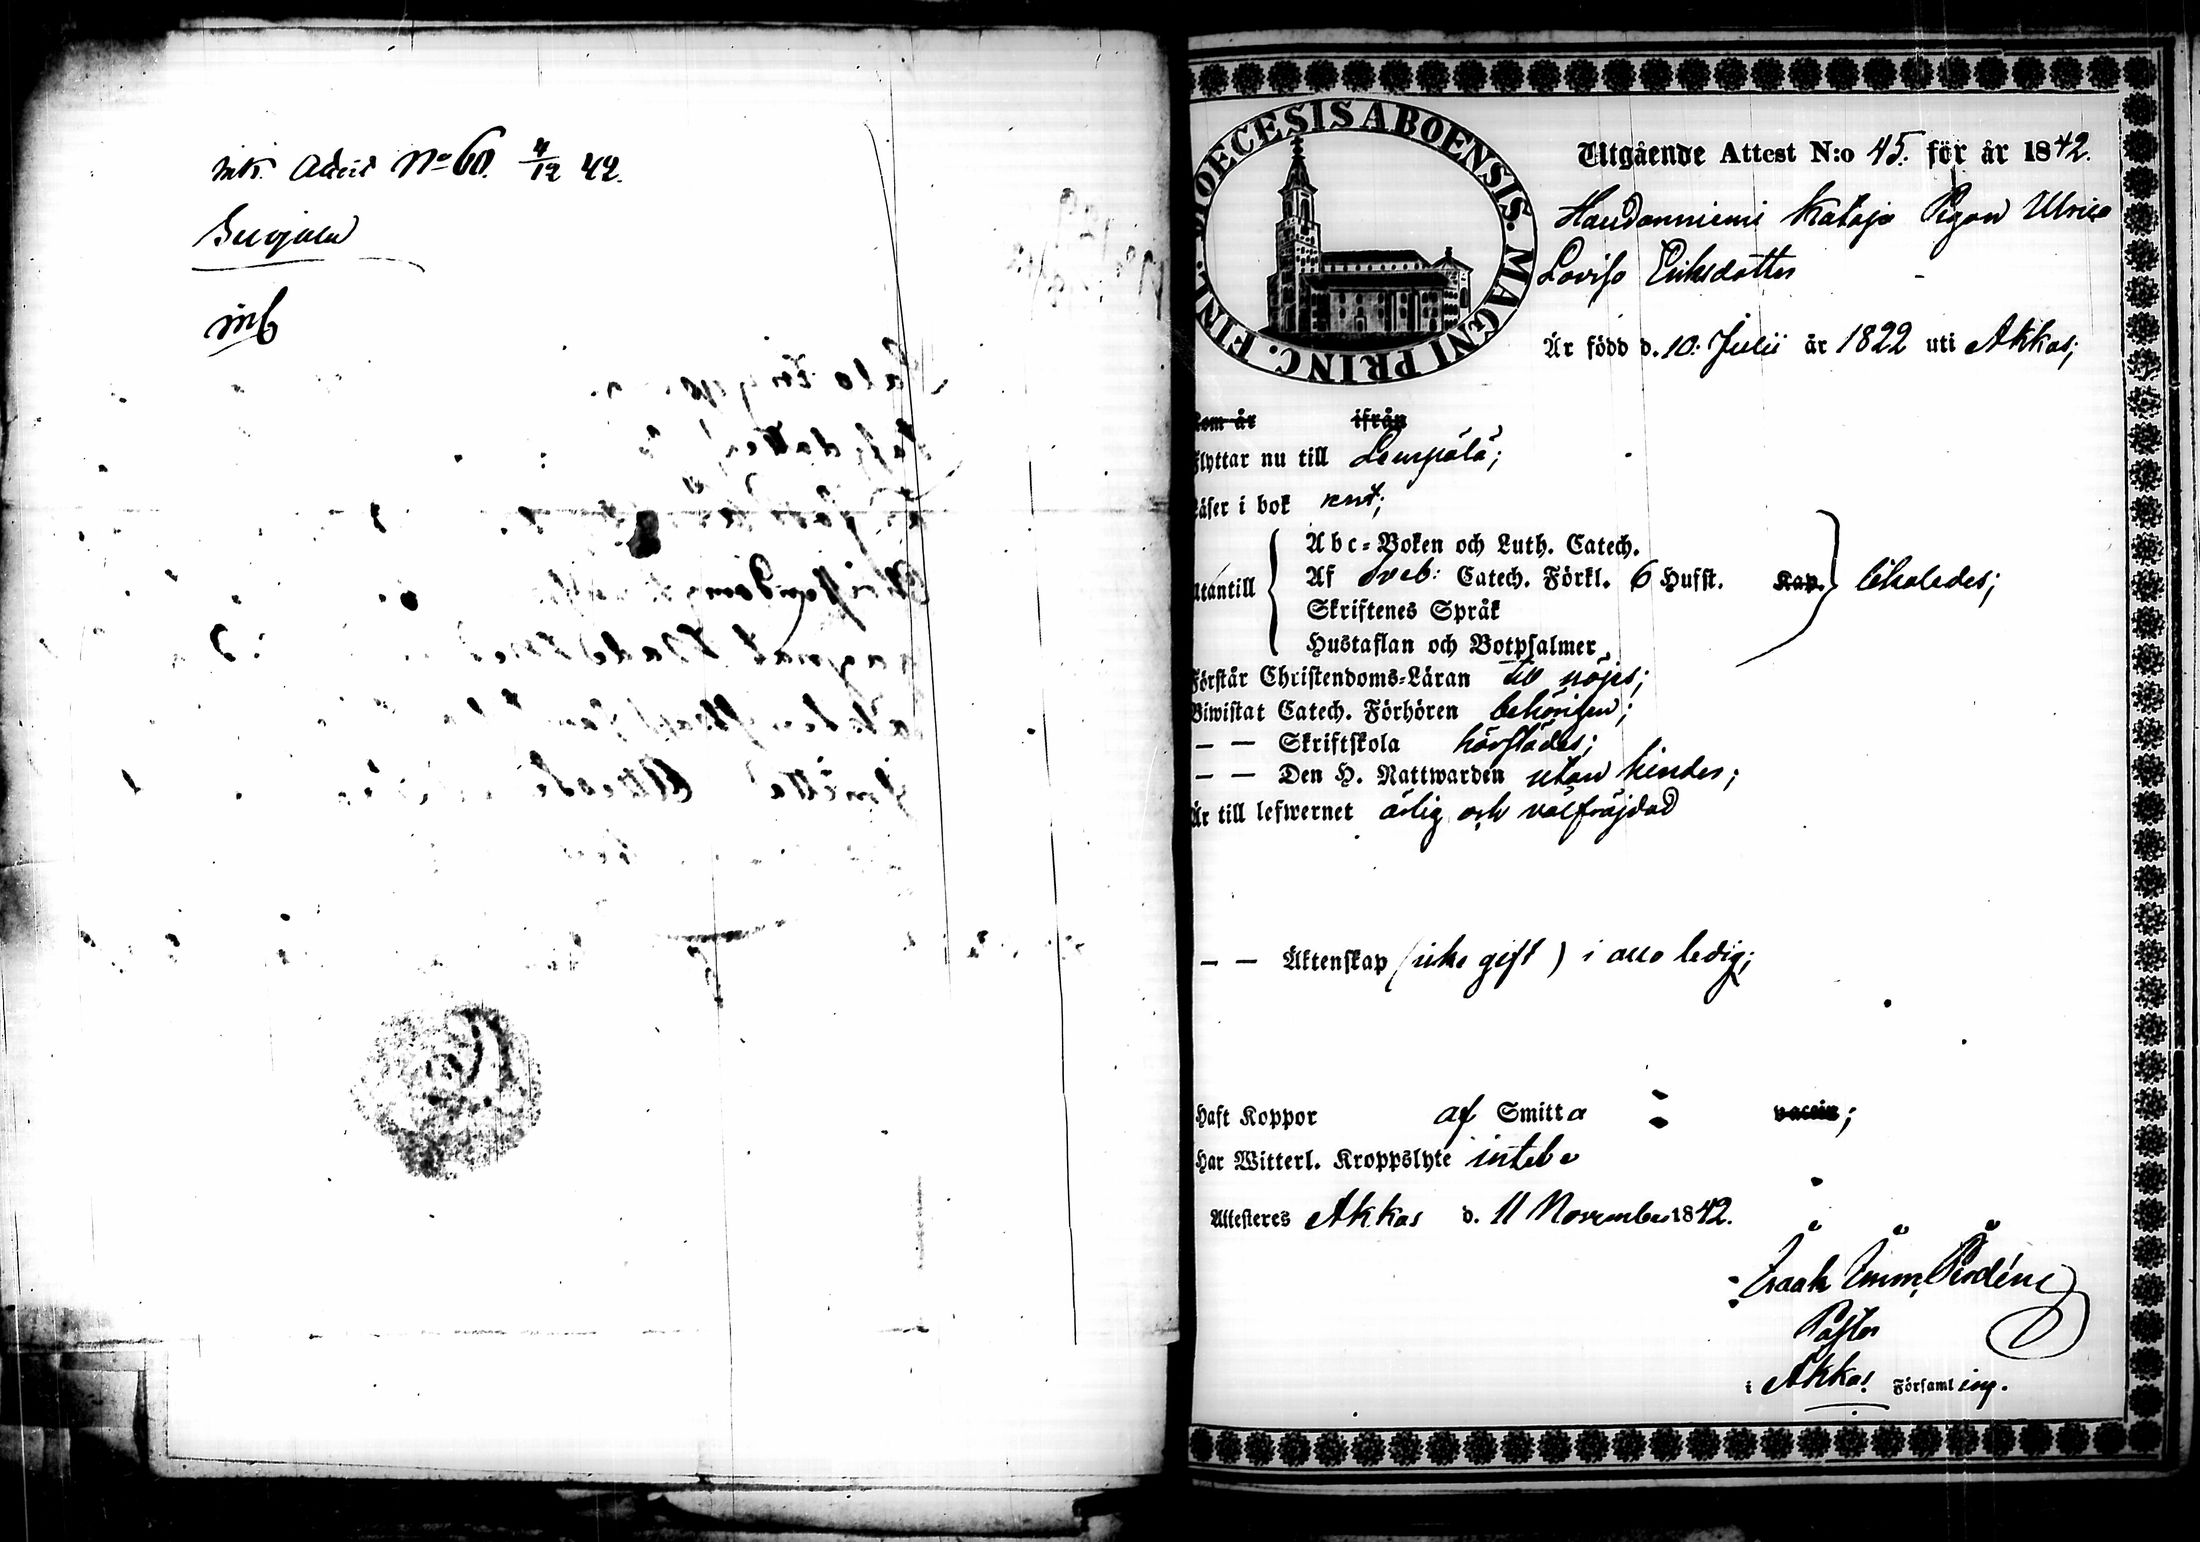 ink. Attest No 60. 4/12 42.
Suojala
inb
DIOECESIS ABOENSIS. MAGNI PRINC. FINL.
Utgående Attest N:o 45. för år 1842.
Haudanniemi Kataja Pigan Ulrica
Lovisa Eriksdotter
Är född d. 10. Julii år 1822 uti Akkas;
Kom år ifrån
Flyttar nu till Lempälä;
Läser i bok rent;
Utantill
Abc-Boken och Luth. Catech.
Af Sveb: Catech. Förkl. 6 Hufst. Kap. likaledes;
Skriftenes Språk
Hustaflan och Botpsalmer
Förstår Christendoms-Läran till nöjes;
Biwistat Catech. Förhören behörigen;
— — Skriftskola härstädes;
— — Den H. Nattwarden utan hinder;
Är till lefwernet ärlig och välfräjdad
— — Äktenskap (icke gift) i allo ledig;
Haft Koppor af Smitta : vaccin;
Har Witterl. Kroppslyte intet
Attesteres Akkas d. 11 November 1842.
Isaak Imm.
Pastor
i Akkas Församling.